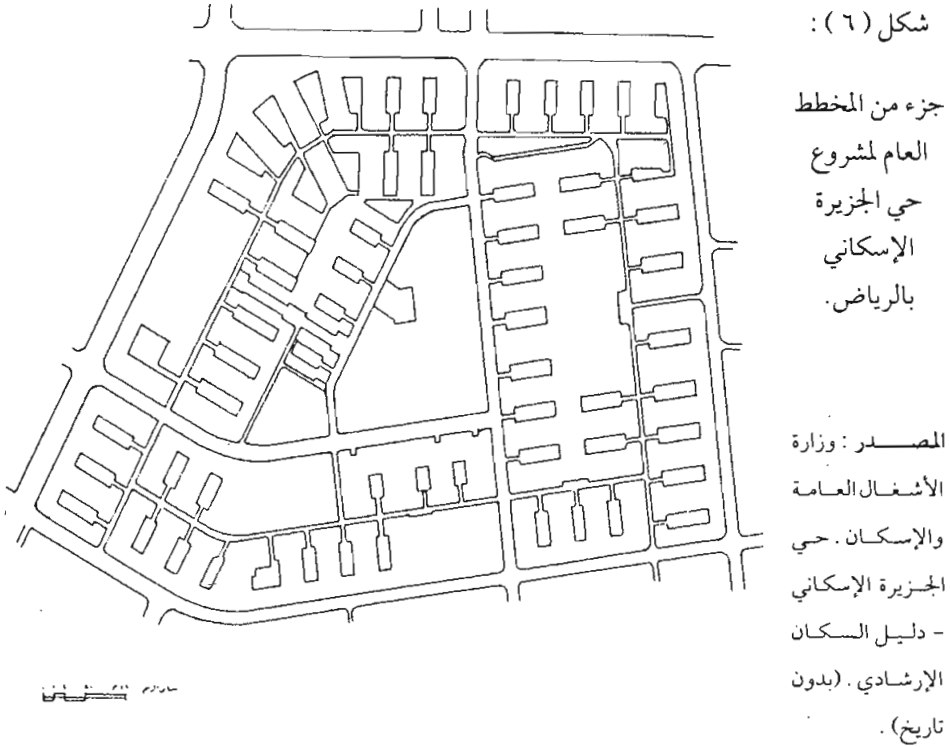 شكل ( ٦ ) :
جزء من المخطط
العام لمشروع
حي الجزيرة
الإسكاني
بالرياض .
المصـــــدر : وزارة
الأشـغـال العـامـة
والإسكـــان . حـي
الجـزيـرة الإسكاني
- دلـيـل السـكـان
الإرشـادي . (بدون
تاريخ) .